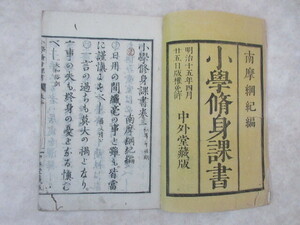 南摩綱紀編
小學脩身課書
明治十五年四月
廿五日版權免許
中外堂藏版
小學脩身課書卷之
南摩綱紀編
日用の間纖毫の事と雖も皆當
に謹愼すべ
一言の過ちも莫大の禍となり
一事の失も終身の憂となる愼む